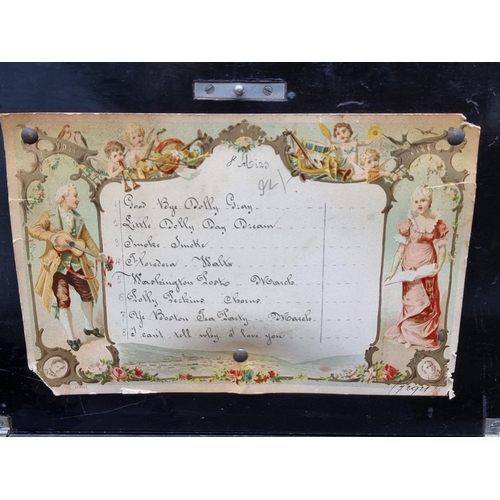 8 Airs
1 Good Bye Dolly Gray
2 Little Dolly Day Dream
3 Smoke - Smoke
4 Florodora Waltz
5 Washington Post March
6 Polly Perkins Chorus
7 Ye Boston Tea Party March
8 I can't tell why I love you